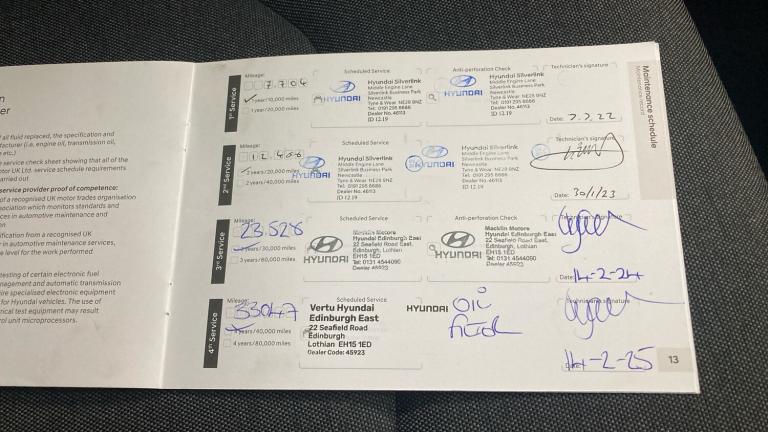 n
er
all fluid replaced, the specification and
facturer (i.e. engine oil, transmission oil,
etc.)
service check sheet showing that all of the
tor UK Ltd. service schedule requirements
arried out
service provider proof of competence:
of a recognised UK motor trades organisation
sociation which monitors standards and
ces in automotive maintenance and
n
ification from a recognised UK
r in automotive maintenance services,
e level for the work performed
testing of certain electronic fuel
nagement and automatic transmission
ire specialised electronic equipment
for Hyundai vehicles. The use of
rical test equipment may result
rol unit microprocessors.
Maintenance schedule
Maintenance record
1st Service
Mileage:
7,704
1 year/10,000 miles
1 year/20,000 miles
Scheduled Service
HYUNDAI
Hyundai Silverlink
Middle Engine Lane
Silverlink Business Park
Newcastle
Tyne & Wear NE28 9NZ
Tel: 0191 295 8686
Dealer No. 46113
ID 12.19
Anti-perforation Check
HYUNDAI
Hyundai Silverlink
Middle Engine Lane
Silverlink Business Park
Newcastle
Tyne & Wear NE28 9NZ
Tel: 0191 295 8686
Dealer No. 46113
ID 12.19
Technician's signature
Date:
2nd Service
Mileage:
12,406
2 years/20,000 miles
2 years/40,000 miles
Scheduled Service
HYUNDAI
Hyundai Silverlink
Middle Engine Lane
Silverlink Business Park
Newcastle
Tyne & Wear NE28 9NZ
Tel: 0191 295 8686
Dealer No. 46113
ID 12.19
HYUNDAI
Hyundai Silverlink
Middle Engine Lane
Silverlink Business Park
Newcastle
Tyne & Wear NE28 9NZ
Tel: 0191 295 8686
Dealer No. 46113
ID 12.19
Technician's signature
Date: 30/1/23
3rd Service
Mileage:
23,528
3 years/30,000 miles
3 years/60,000 miles
Scheduled Service
HYUNDAI
Macklin Motors
Hyundai Edinburgh East
22 Seafield Road East
Edinburgh, Lothian
EH15 1ED
Tel: 0131 4544090
Dealer 45923
Anti-perforation Check
HYUNDAI
Macklin Motors
Hyundai Edinburgh East
22 Seafield Road East
Edinburgh, Lothian
EH15 1ED
Tel: 0131 4544090
Dealer 45923
Technician's signature
Date: 14-2-24
4th Service
Mileage:
33047
4 years/40,000 miles
4 years/80,000 miles
Scheduled Service
Vertu Hyundai
Edinburgh East
22 Seafield Road
Edinburgh
Lothian EH15 1ED
Dealer Code: 45923
HYUNDAI
Oil
Technician's signature
14-2-25
13